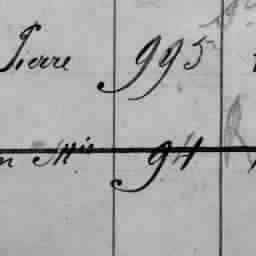 Pierre 995
n Mie 94